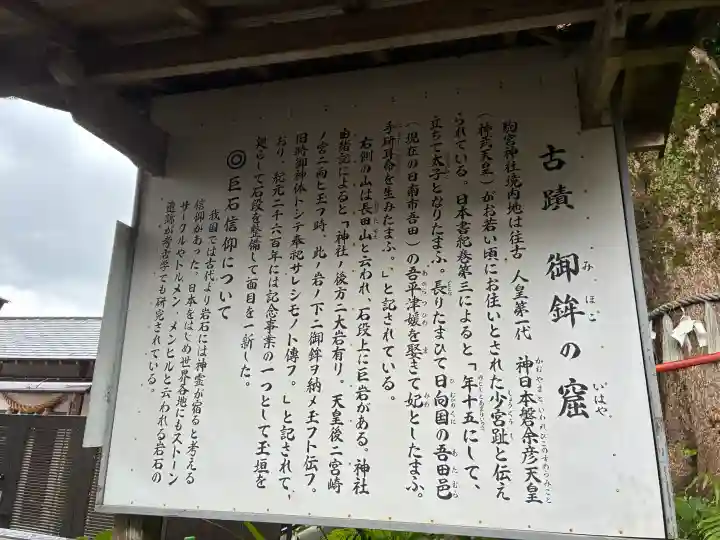 古蹟 御鉾の窟
みほこ いはや
駒宮神社境内地は往古 人皇第一代 神日本磐余彦天皇
かむやまといわれひこのすめらみこと
(神武天皇)がお若い頃にお住いとされた少宮趾と伝え
られている。日本書紀巻第三によると「年十五にして、
立ちて太子となりたまふ。長りたまひて日向国の吾田邑
ひむかのくに あたむら
(現在の日南市吾田)の吾平津媛を娶きて妃としたまふ。
あひらつひめ ま みめ
手研耳命を生みたまふ。」と記されている。
右側の山は長田山と云われ、石段上に巨岩がある。神社
由緒記によると「神社ノ後方ニ大岩有リ。天皇後ニ宮崎
ノ宮ニ両ヒ玉フ時、此ノ岩ノ下ニ御鉾ヲ納メ玉フト伝フ。
旧時御神体トシテ奉祀サレシモノト傳フ。」と記されて
おり、紀元二千六百年には記念事業の一つとして玉垣を
廻らして石段を整備して面目を一新した。
◎巨石信仰について
我国では古代より岩石には神霊が宿ると考える
信仰があった。日本をはじめ世界各地にもストーン
サークルやドルメン、メンヒルと云われる岩石の
遺跡が考古学でも研究されている。